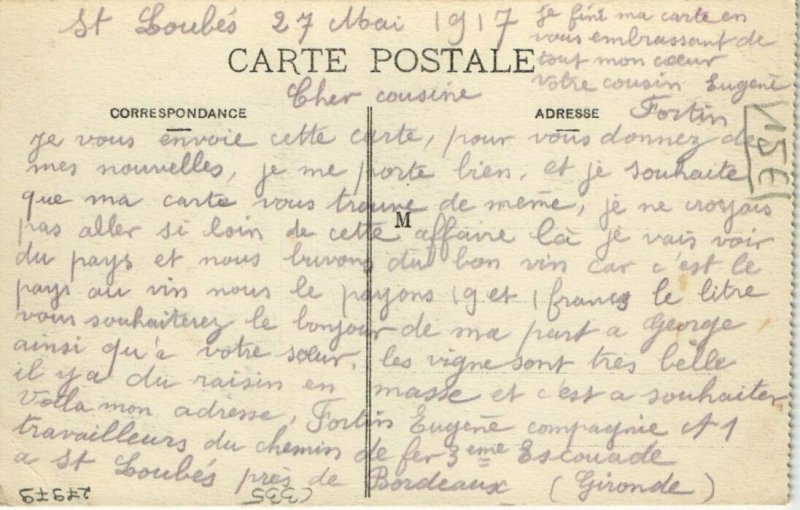 St Loubés 27 Mai 1917
CARTE POSTALE
CORRESPONDANCE
ADRESSE
M
Cher cousine
je vous envoie cette carte, pour vous donnez de
mes nouvelles, je me porte bien, et je souhaite
que ma carte vous trouve de même, je ne croyais
pas aller si loin de cette affaire là je vais voir
du pays et nous buvons du bon vin car c'est le
pays au vin nous le payons 19 et 1 francs le litre
vous souhaiterez le bonjour de ma part a George
ainsi qu'a votre sœur, les vigne sont très belle
il ya du raisin en masse et c'est a souhaiter
Voila mon adresse, Fortin Eugène compagnie A 1
travailleurs du chemin de fer 3eme Escouade
a St Loubés près de Bordeaux (Gironde)
je fini ma carte en
vous embrassant de
tout mon cœur
votre cousin Eugène
Fortin
27979